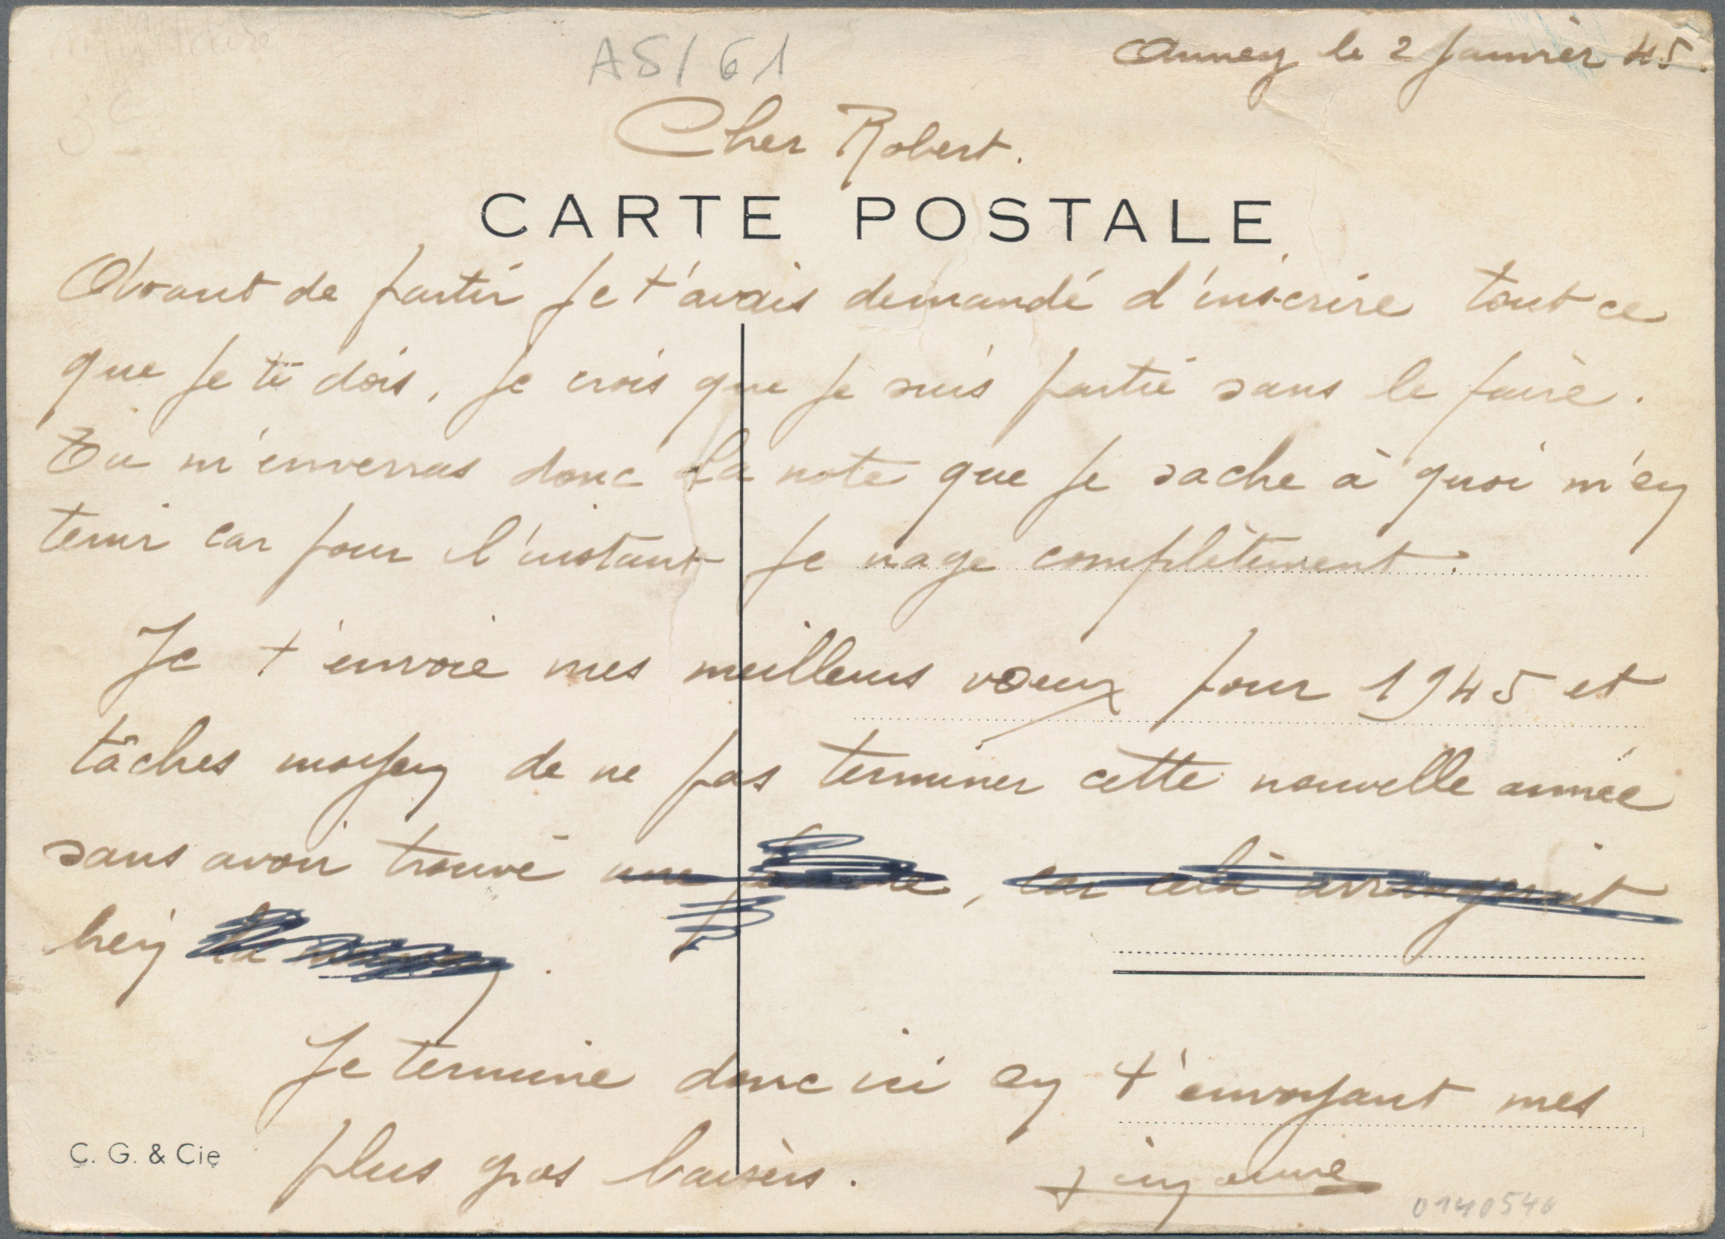 AS/61
Annecy le 2 Janvier 45.
Cher Robert.
CARTE POSTALE
Avant de partir je t'avais demandé d'inscrire tout ce
que je te dois, je crois que je suis partie sans le faire.
Tu m'enverras donc la note que je sache à quoi m'en
tenir car pour l'instant je nage complètement.
Je t'envoie mes meilleurs vœux pour 1945 et
tâches moyen de ne pas terminer cette nouvelle année
sans avoir trouvé une, car cela arrangerait
hein
Je termine donc ici en t'envoyant mes
plus gros baisers.
C. G. & Cie
0940540